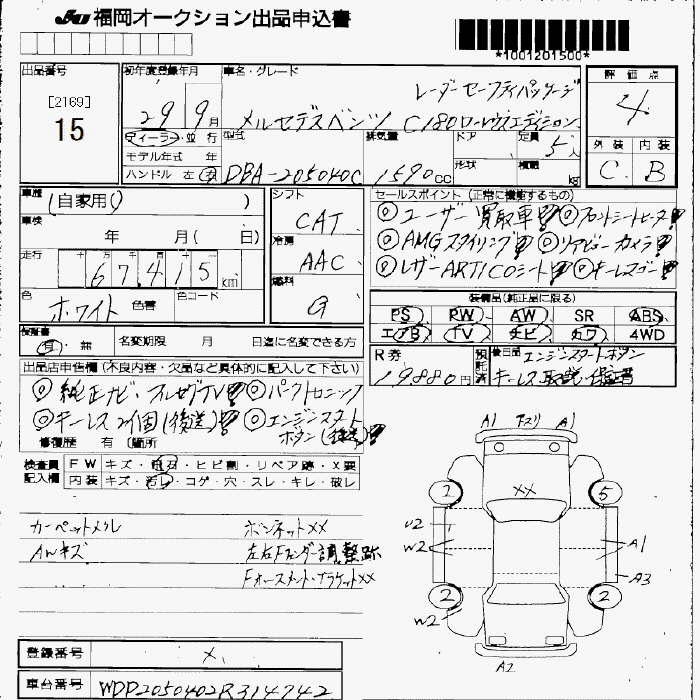 JU 福岡オークション出品申込書
*1001201500*
出品番号 初年度登録年月 車名・グレード 評価点
[2169] レーダーセーフティパッケージ
15 29年9月 メルセデスベンツ C180ローレウスエディション 4
ディーラー・並行 型式 排気量 ドア 定員 5人 外装 内装
モデル年式 年 形状 積載 C B
ハンドル 左 右 DBA-205040C 1590cc kg
車歴 (自家用) シフト セールスポイント (正常に機能するもの)
CAT ◎ユーザー買取車!! ◎フロントシートヒーター!!
車検 年 月(日) 冷房 ◎AMGスタイリング!! ◎リアビューカメラ!!
走行 67,415km AAC ◎レザーARTICOシート!! ◎キーレスゴー!!
色 ホワイト 色替 色コード 燃料 G
装備品(純正品に限る)
PS PW AW SR ABS
保証書 有・無 名変期限 月 日迄に名変できる方 エアB TV ナビ カワ 4WD
出品店申告欄 (不良内容・欠品など具体的に記入して下さい) R券 19880円 預託済 後日品 エンジンスタートボタン
キーレス 取説・保証書
◎純正ナビ・フルセグTV!! ◎パークトロニック
◎キーレス2個(後送)!! ◎エンジンスタート
ボタン(後送)!!
修復歴 有 (箇所
検査員 FW キズ・飛石・ヒビ割・リペア跡・X要
記入欄 内装 キズ・汚レ・コゲ・穴・スレ・キレ・破レ
A1 アスリ A1
2 XX 5
カーペットメクレ ボンネットXX U2
AWキズ 左右Fフェンダー調整跡 W2 A1
A3
2 2
W2
A2
登録番号
車台番号 WDD2050402R314742